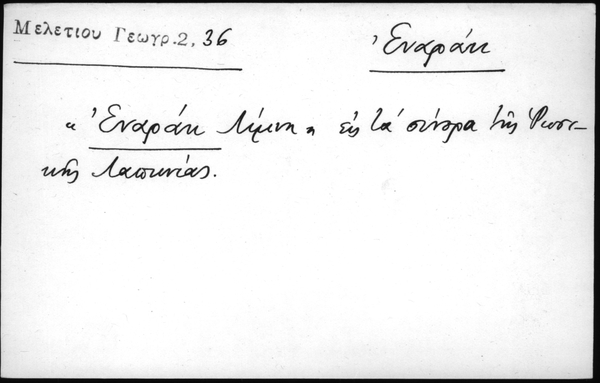 Μελετίου Γεωγρ. 2, 36
Ἐναράκ
« Ἐναράκ Λίμνη » εἰς τὰ σύνορα τῆς Ῥωσι-
κῆς Λαπωνίας.